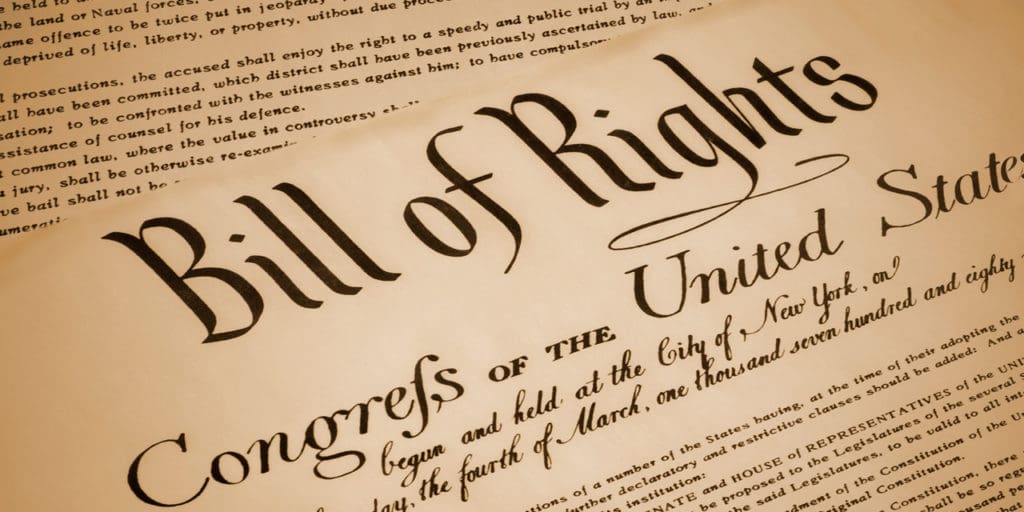 the land or Naval forces,
same offence to be twice put in jeopardy
deprived of life, liberty, or property, without due
prosecutions, the accused shall enjoy the right to a speedy and public trial by an
all have been committed, which district shall have been previously ascertained by law,
to be confronted with the witnesses against him; to have compulsory
assistance of counsel for his defence.
common law, where the value in controversy
jury, shall be otherwise re-exami
bail shall not be
Bill of Rights
Congreſs OF THE United States
begun and held at the City of New York, on
the fourth of March, one thousand seven hundred and eighty
of a number of the States having, at the time of their adopting the
further declaratory and restrictive clauses should be added: And a
institution:
NATE and HOUSE of REPRESENTATIVES of the UNI
be proposed to the Legislatures of the several S
the said Legislatures, to be valid to all int
ndment of the Constitution of the Un
riginal Constitution.
Constitution, there
shall be so reg